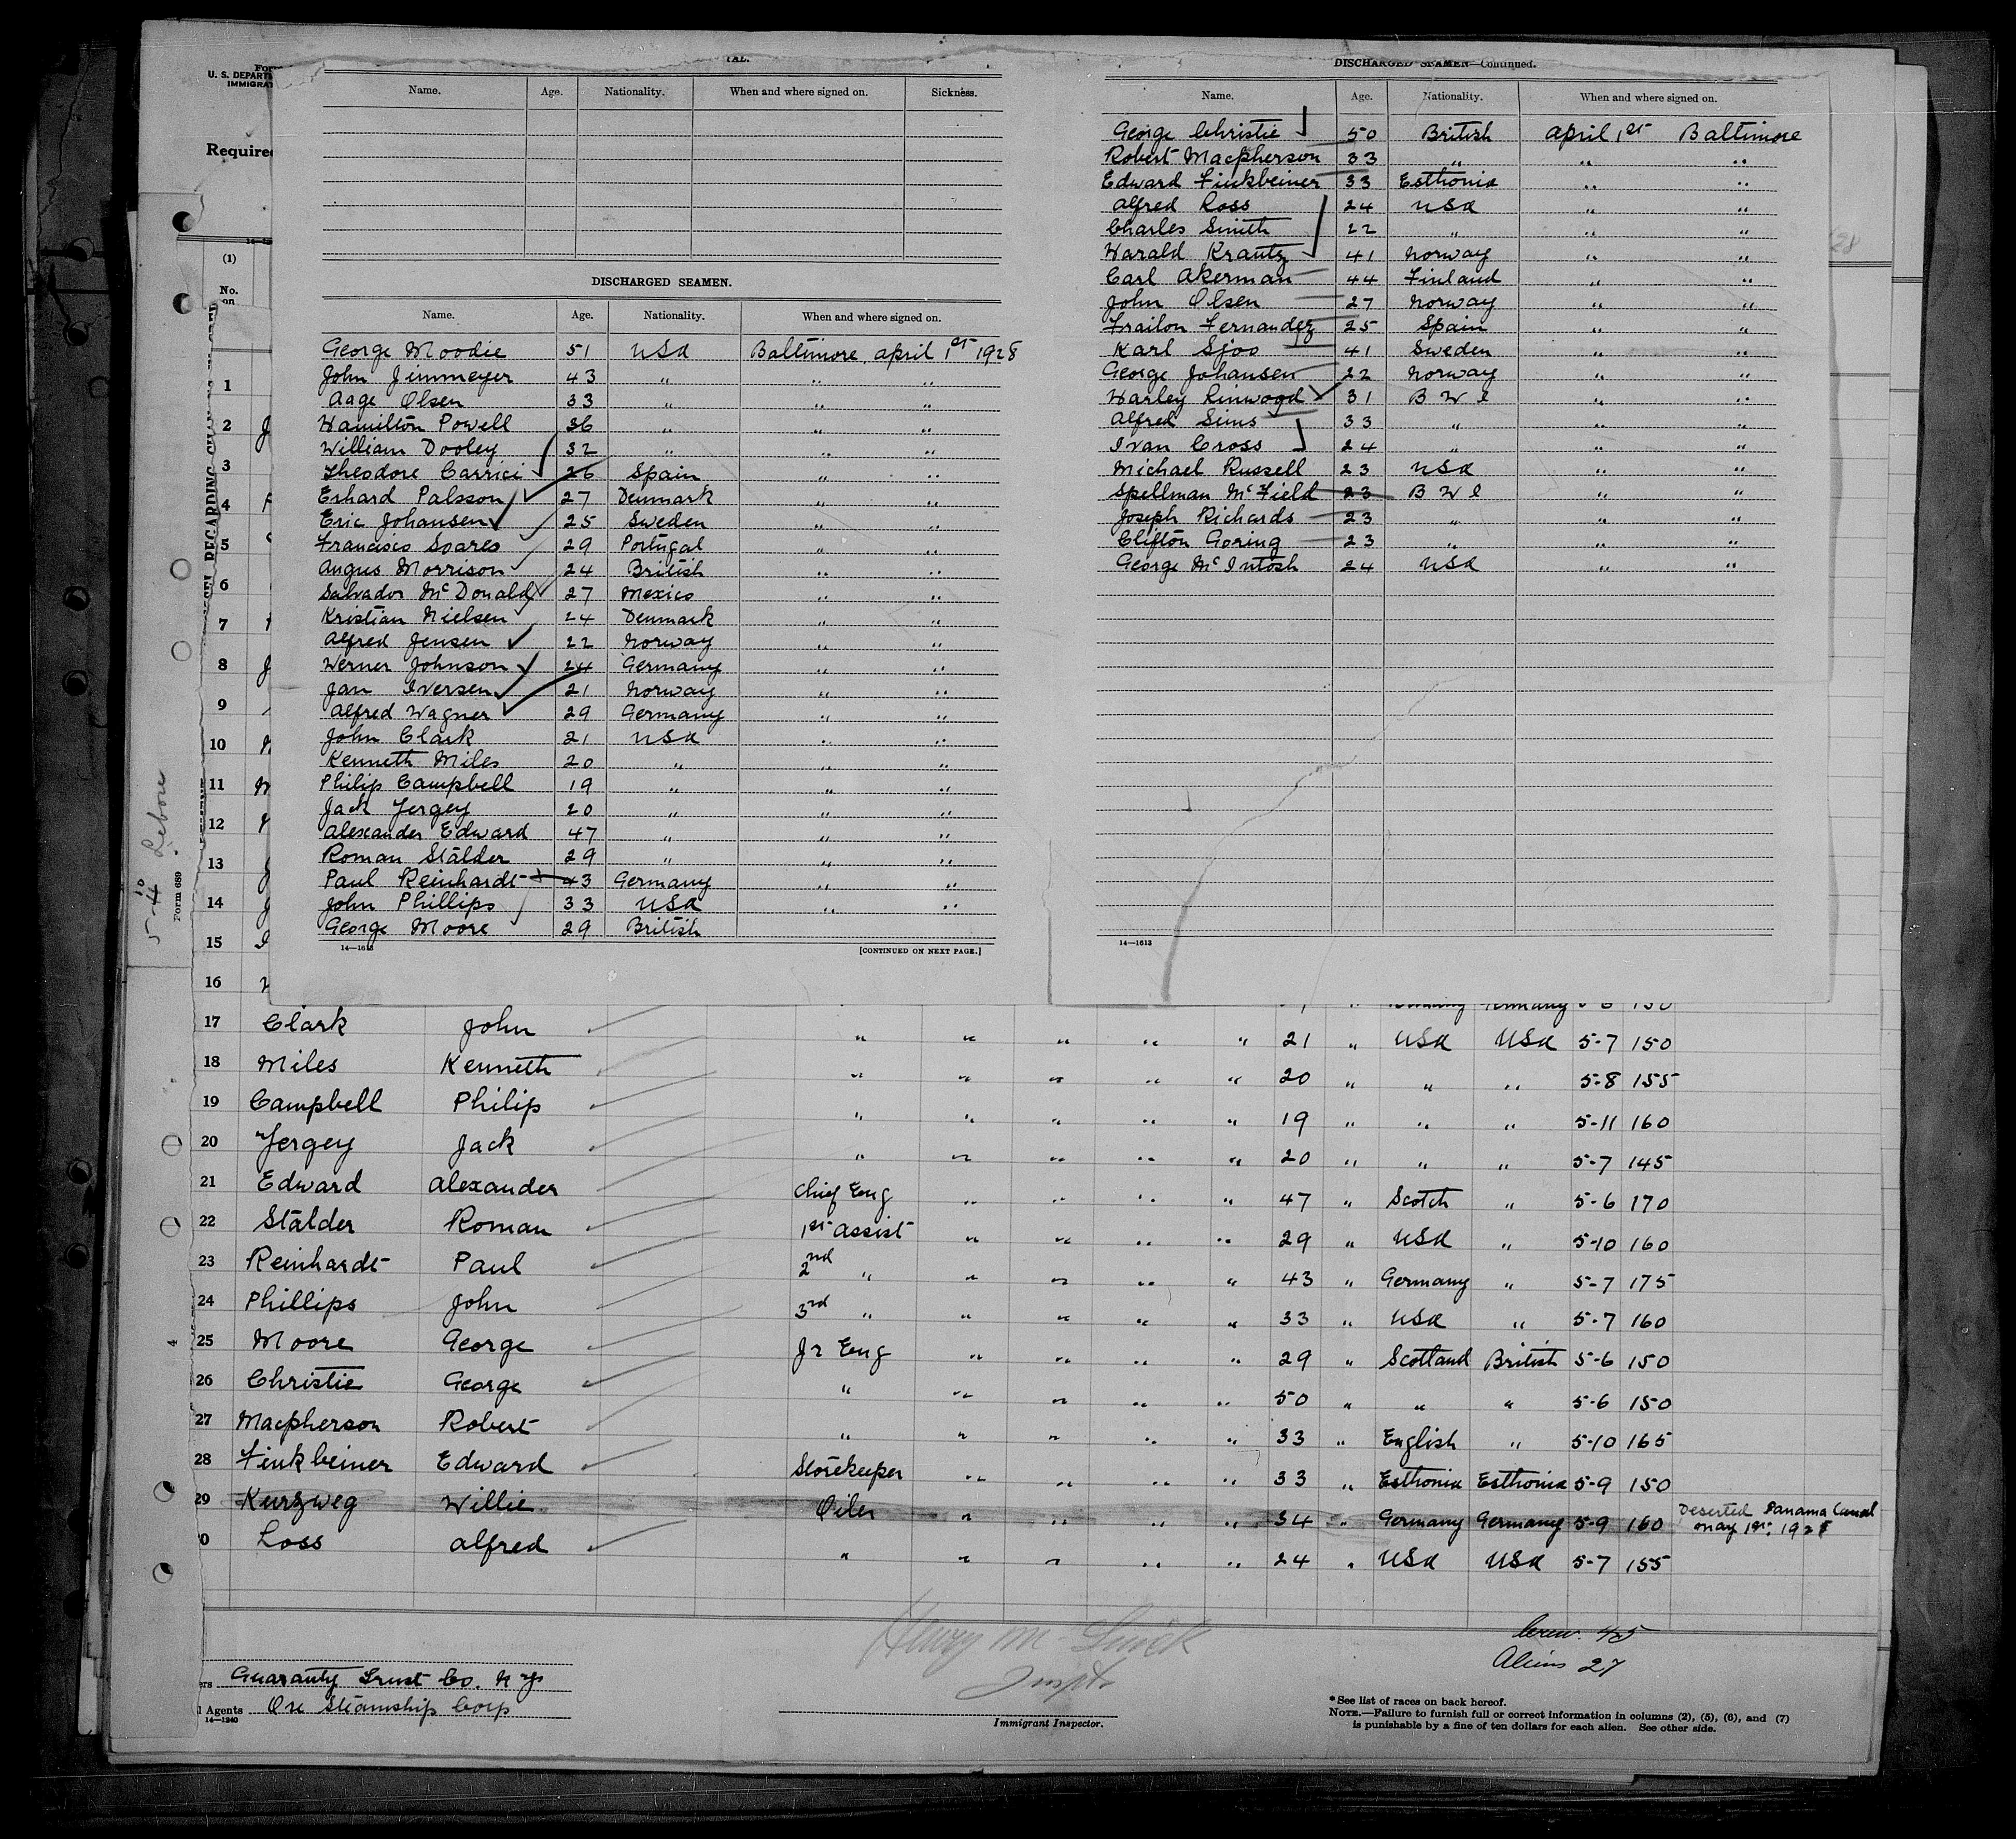 TAL.
Name. Age. Nationality. When and where signed on. Sickness.
DISCHARGED SEAMEN.
Name. Age. Nationality. When and where signed on.
George Moodie 51 USA Baltimore, april 1st 1928
John Jimmeyer 43 " " "
Aage Olsen 33 " " "
Hamilton Powell 36 " " "
William Dooley 32 " " "
Theodore Carrici 26 Spain " "
Erhard Palsson 27 Denmark " "
Eric Johansen 25 Sweden " "
Francisco Soares 29 Portugal " "
Angus Morrison 24 British " "
Salvador McDonald 27 Mexico " "
Kristian Nielsen 24 Denmark " "
Alfred Jensen 22 Norway " "
Werner Johnson 24 Germany " "
Jan Iversen 21 Norway " "
Alfred Wagner 29 Germany " "
John Clark 21 USA " "
Kenneth Miles 20 " " "
Philip Campbell 19 " " "
Jack Yergey 20 " " "
Alexander Edward 47 " " "
Roman Stälder 29 " " "
Paul Reinhardt 43 Germany " "
John Phillips 33 USA " "
George Moore 29 British
14—1613 [CONTINUED ON NEXT PAGE.]
DISCHARGED SEAMEN—Continued.
Name. Age. Nationality. When and where signed on.
George Christie 50 British april 1st Baltimore
Robert Macpherson 33 " " "
Edward Finkbeiner 33 Esthonia " "
Alfred Loss 24 USA " "
Charles Smith 22 " " "
Harald Krautz 41 Norway " "
Carl Akerman 44 Finland " "
John Olsen 27 Norway " "
Frailon Fernandez 25 Spain " "
Karl Sjoo 41 Sweden " "
George Johansen 22 Norway " "
Harley Linwood 31 B W I " "
Alfred Sims 33 " " "
Ivan Cross 24 " " "
Michael Russell 23 USA " "
Spellman McField 23 B W I " "
Joseph Richards 23 " " "
Clifton Goring 23 " " "
George McIntosh 24 USA " "
14—1613
U. S. DEPART
IMMIGRAT
Require
(1)
No. on
1
2
3
4
5
6
7
8
9
10
11
12
13
14
15
16
17 Clark John " " " " " 21 " USA USA 5-7 150
18 Miles Kenneth " " " " " 20 " " " 5-8 155
19 Campbell Philip " " " " " 19 " " " 5-11 160
20 Yergey Jack " " " " " 20 " " " 5-7 145
21 Edward Alexander Chief Eng " " " " 47 " Scotch " 5-6 170
22 Stälder Roman 1st assist " " " " 29 " USA " 5-10 160
23 Reinhardt Paul 2nd " " " " " 43 " Germany " 5-7 175
24 Phillips John 3rd " " " " " 33 " USA " 5-7 160
25 Moore George Jr Eng " " " " 29 " Scotland British 5-6 150
26 Christie George " " " " " 50 " " " 5-6 150
27 Macpherson Robert " " " " " 33 " English " 5-10 165
28 Finkbeiner Edward Storekeeper " " " " 33 " Esthonia Esthonia 5-9 150
29 Kurzweg Willie Oiler " " " " 34 " Germany Germany 5-9 160 Deserted Panama Canal May 1st, 1928
0 Loss Alfred " " " " " 24 " USA USA 5-7 155
Crew. 45
Aliens 27
Henry M
Inspt.
ers Guaranty Trust Co. N Y
l Agents Ore Steamship Corp
14—1240
Immigrant Inspector.
*See list of races on back hereof.
NOTE.—Failure to furnish full or correct information in columns (2), (5), (6), and (7)
is punishable by a fine of ten dollars for each alien. See other side.
Form 689
4